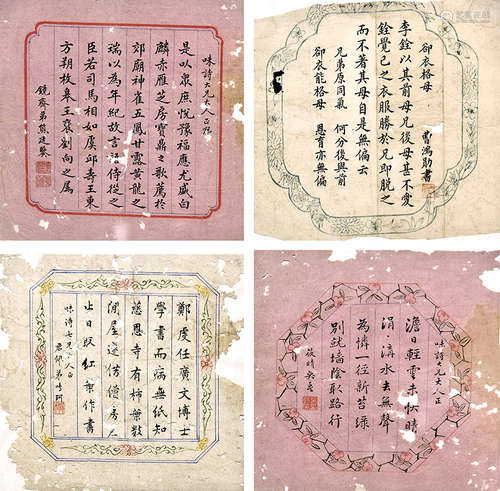 味詩大兄大人
是以眾庶悅豫福應尤盛白
麟赤雁芝房寶鼎之歌薦於
郊廟神雀五鳳甘露黃龍之
瑞以為年紀故言語侍從之
臣若司馬相如虞邱壽王東
方朔枚皋王襃劉向之屬
鏡齋弟熊廷
卻衣格母
李銓以其前母兄後母甚不愛
銓覺己之衣服勝於兄即脫之
而不著其母自是無偏云
兄弟原同氣 何分後與前
卻衣能格母 恩育亦無偏
曹鴻勛書
鄭虔任廣文博士
學書而病無紙知
慈恩寺有柿葉數
間屋遂借僧房居
止日取紅葉作書
味詩大兄大人正
弟
味詩大兄大人正
澹日輕雲未快晴
涓涓水去無聲
為憐一徑新苔綠
別就牆陰取路行